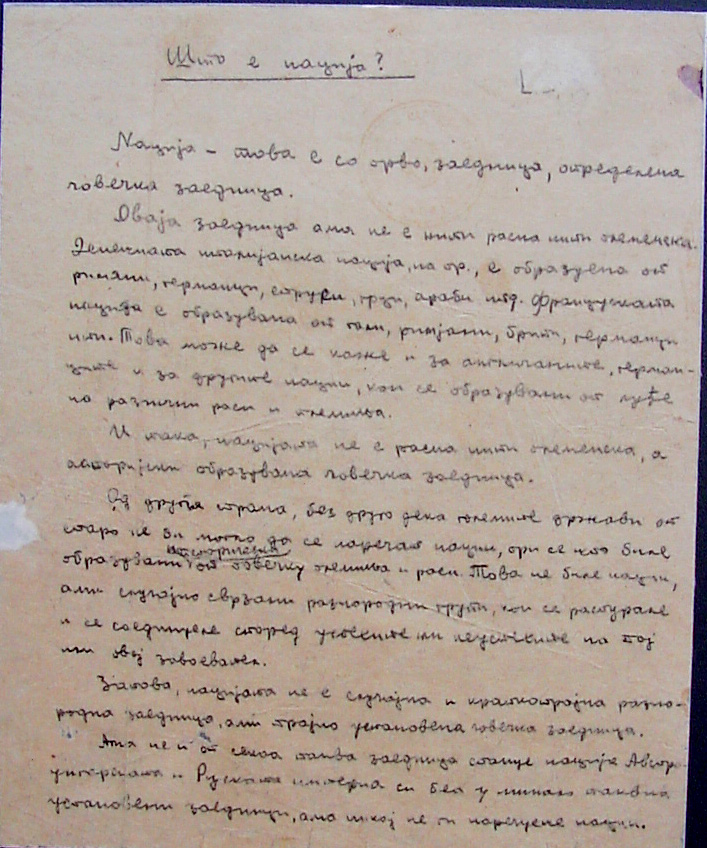 Што е нација?
Нација – това е со прво, заедница, определена
човечка заедница.
Оваја заедница ама не е нити расна нити племенска.
италијанска нација, на пр., е образуена от
римјани, германци, етрури, грци, араби итд. Французката
нација е образувана от гали, римјани, брити, германци
итн. Това може да се каже и за англичаните, герман-
ците и за другите нации, кои се образували от луѓе
по различни раси и племиња.
И така, нацијата не е расна нити племенска, а
образувана човечка заедница.
Од другата страна, без друго дека големите држави от
старо не би могло да се наречат нации, при се што биле
образувани от повечку племиња и раси. Това не биле нации,
исторически
али случајно сврзани разнородни групи, кои се растурале
и се соединуеле според успехите или неуспехите на тој
или овој завоевател.
Затова, нацијата не е случајна и краткотрајна разно-
родна заедница, али трајно установена човечка заедница.
Ама не и от секоа таква заедница стануе нација. Австро-
унгарската и Руската империа си беа у минало такива
установени заедници, ама никој не ги наречуеле нации.